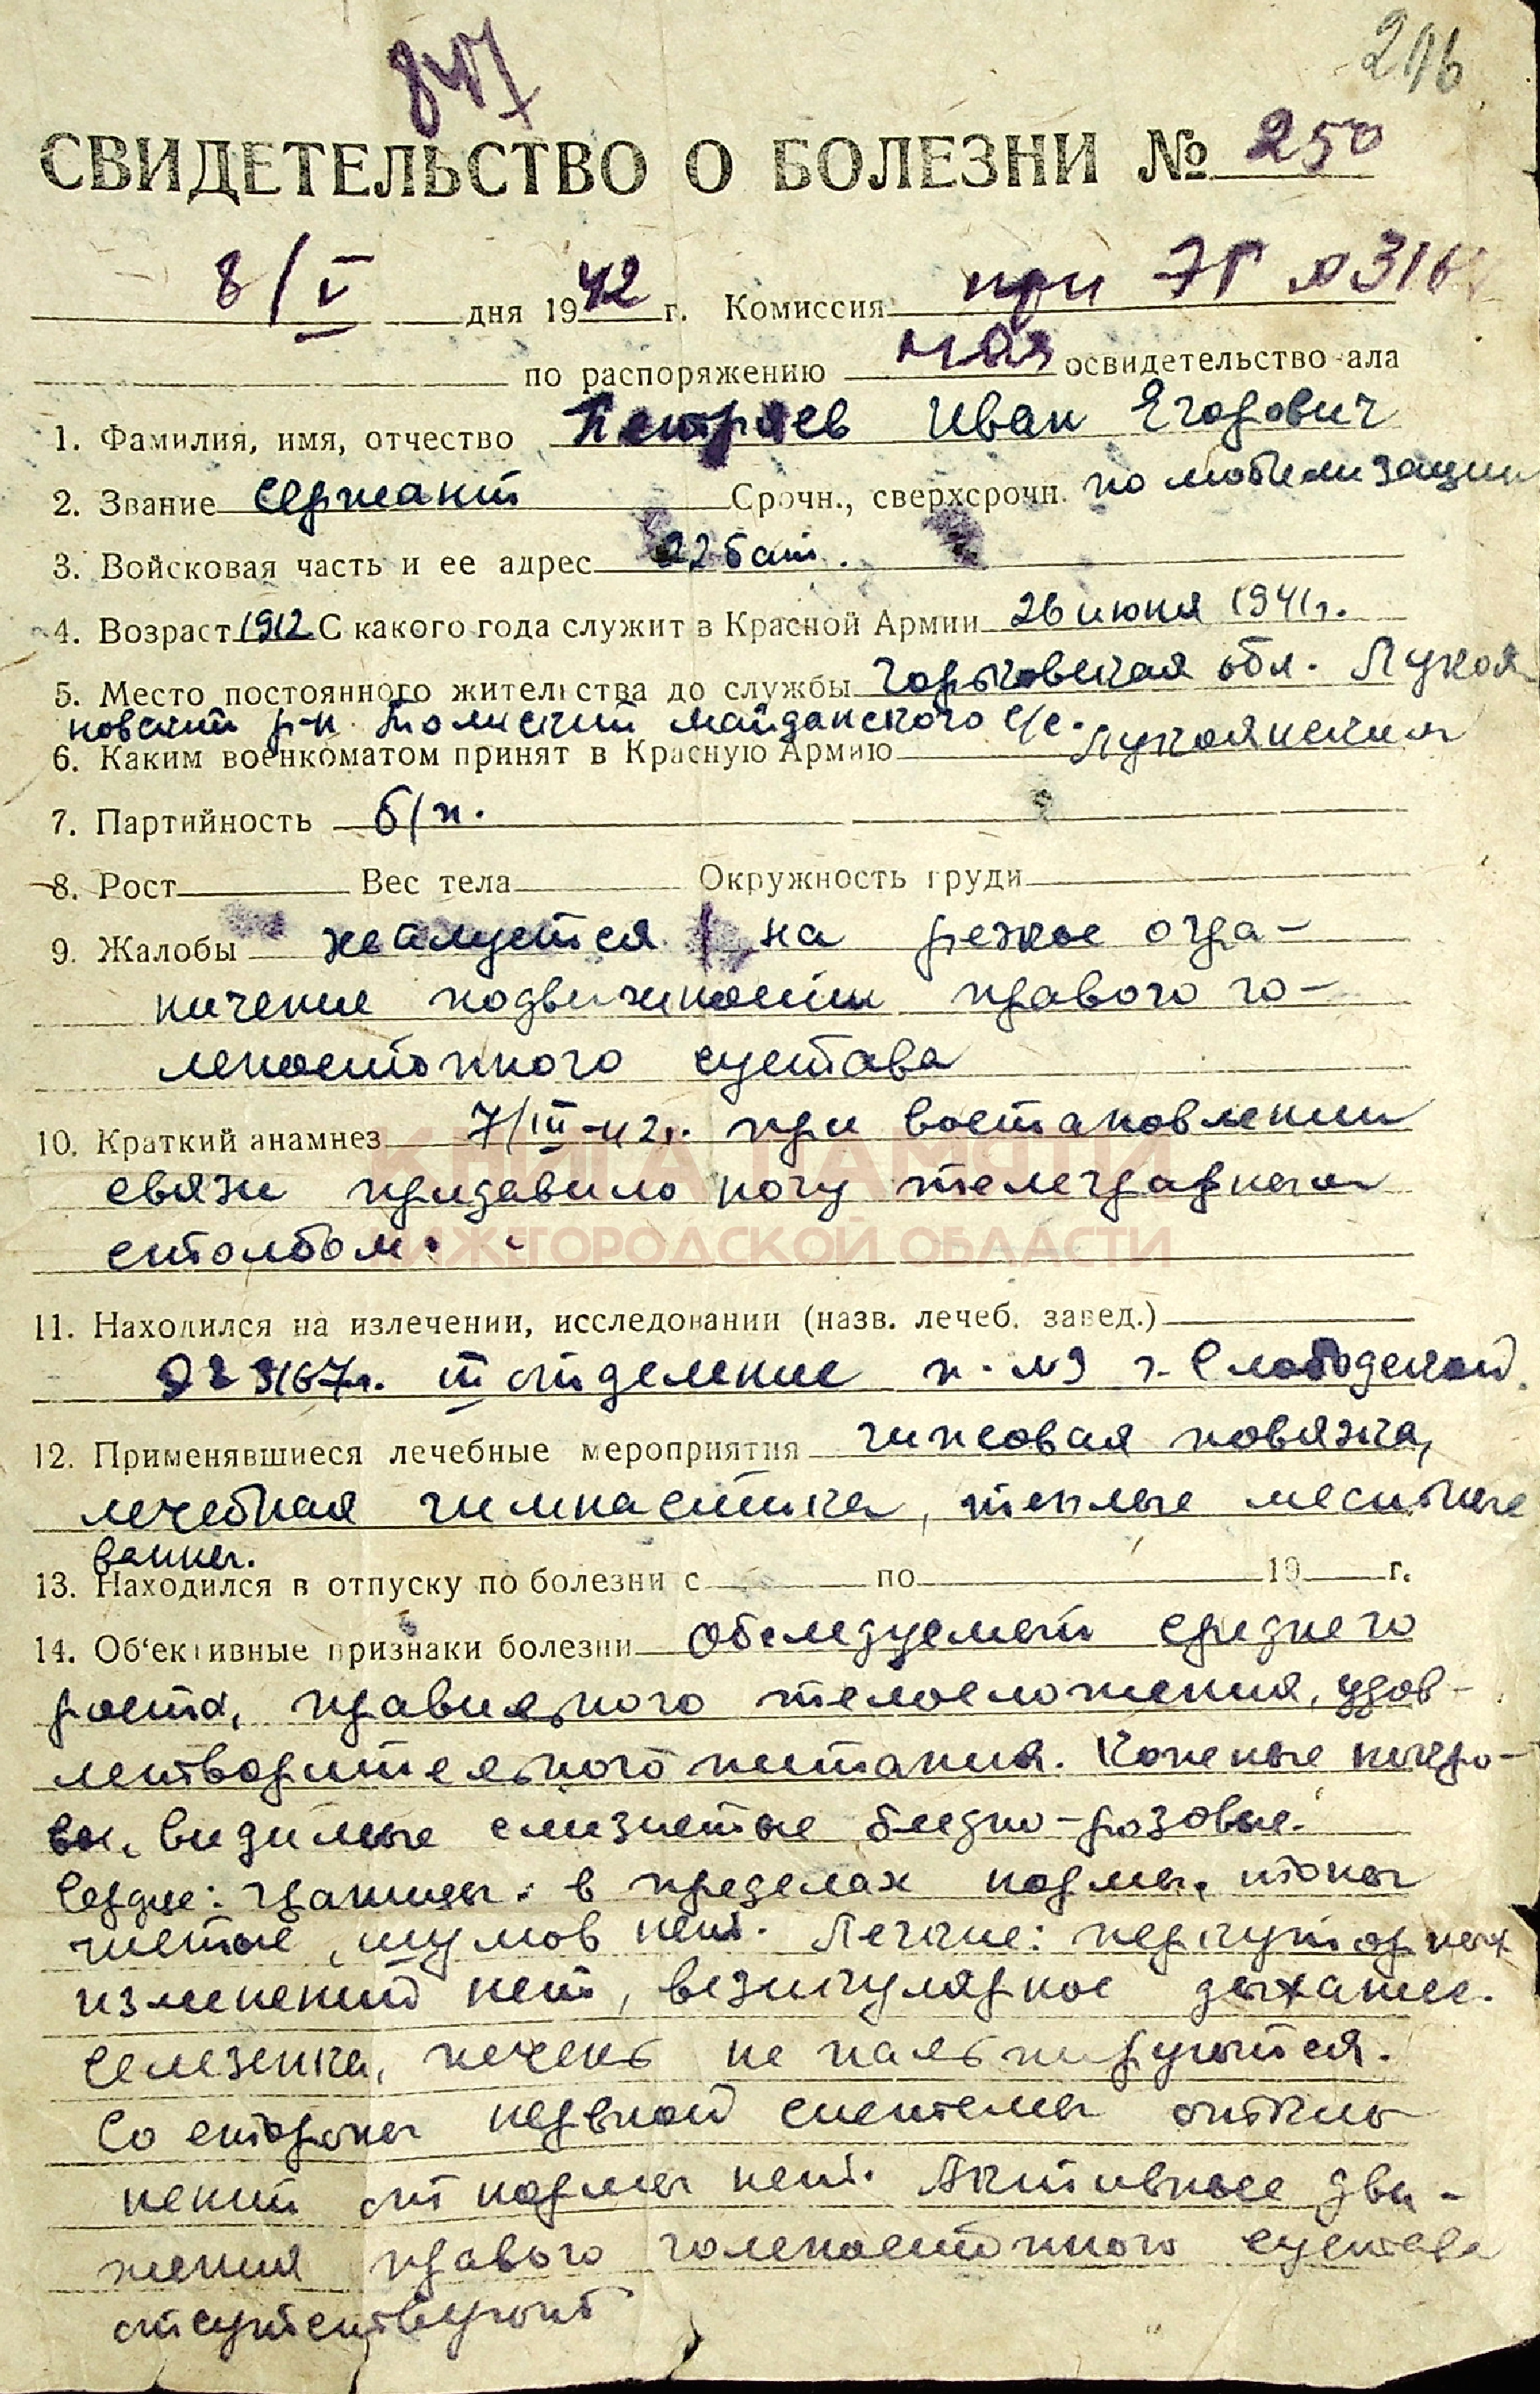 847
СВИДЕТЕЛЬСТВО О БОЛЕЗНИ № 250
8/V дня 1942 г. Комиссия при ЭГ №3167
по распоряжению НОЯ освидетельствовала
1. Фамилия, имя, отчество Петряев Иван Егорович
2. Звание сержант Срочн., сверхсрочн. по мобилизации
3. Войсковая часть и ее адрес 22 бат.
4. Возраст 1912 С какого года служит в Красной Армии 26 июня 1941 г.
5. Место постоянного жительства до службы Горьковская обл. Лукоя-
новский р-н майданского с/с.
6. Каким военкоматом принят в Красную Армию Лукояновским
7. Партийность б/п.
8. Рост Вес тела Окружность груди
9. Жалобы жалуется на резкое огра-
ничение подвижности правого го-
леностопного сустава
10. Краткий анамнез 7/III-42г. при востановлении
связи придавило ногу телеграфным
столбом.
КНИГА ПАМЯТИ
НИЖЕГОРОДСКОЙ ОБЛАСТИ
11. Находился на излечении, исследовании (назв. лечеб. завед.)
ЭГ 3167г. III отделение п. №3 г. Слободской.
12. Применявшиеся лечебные мероприятия гипсовая повязка,
лечебная гимнастика, теплые местные
ванны.
13. Находился в отпуску по болезни с по 19 г.
14. Об'ективные признаки болезни Обследуемый среднего
роста, правильного телосложения, удов-
летворительного питания. Кожные покро-
вы, видимые слизистые бледно-розовые.
Сердце: границы в пределах нормы, тоны
чистые, шумов нет. Легкие: перкуторных
изменений нет, везикулярное дыхание.
Селезенка, печень не пальпируются.
Со стороны нервной системы откло
нений от нормы нет. Активные дви-
жения правого голеностопного сустава
отсутствуют